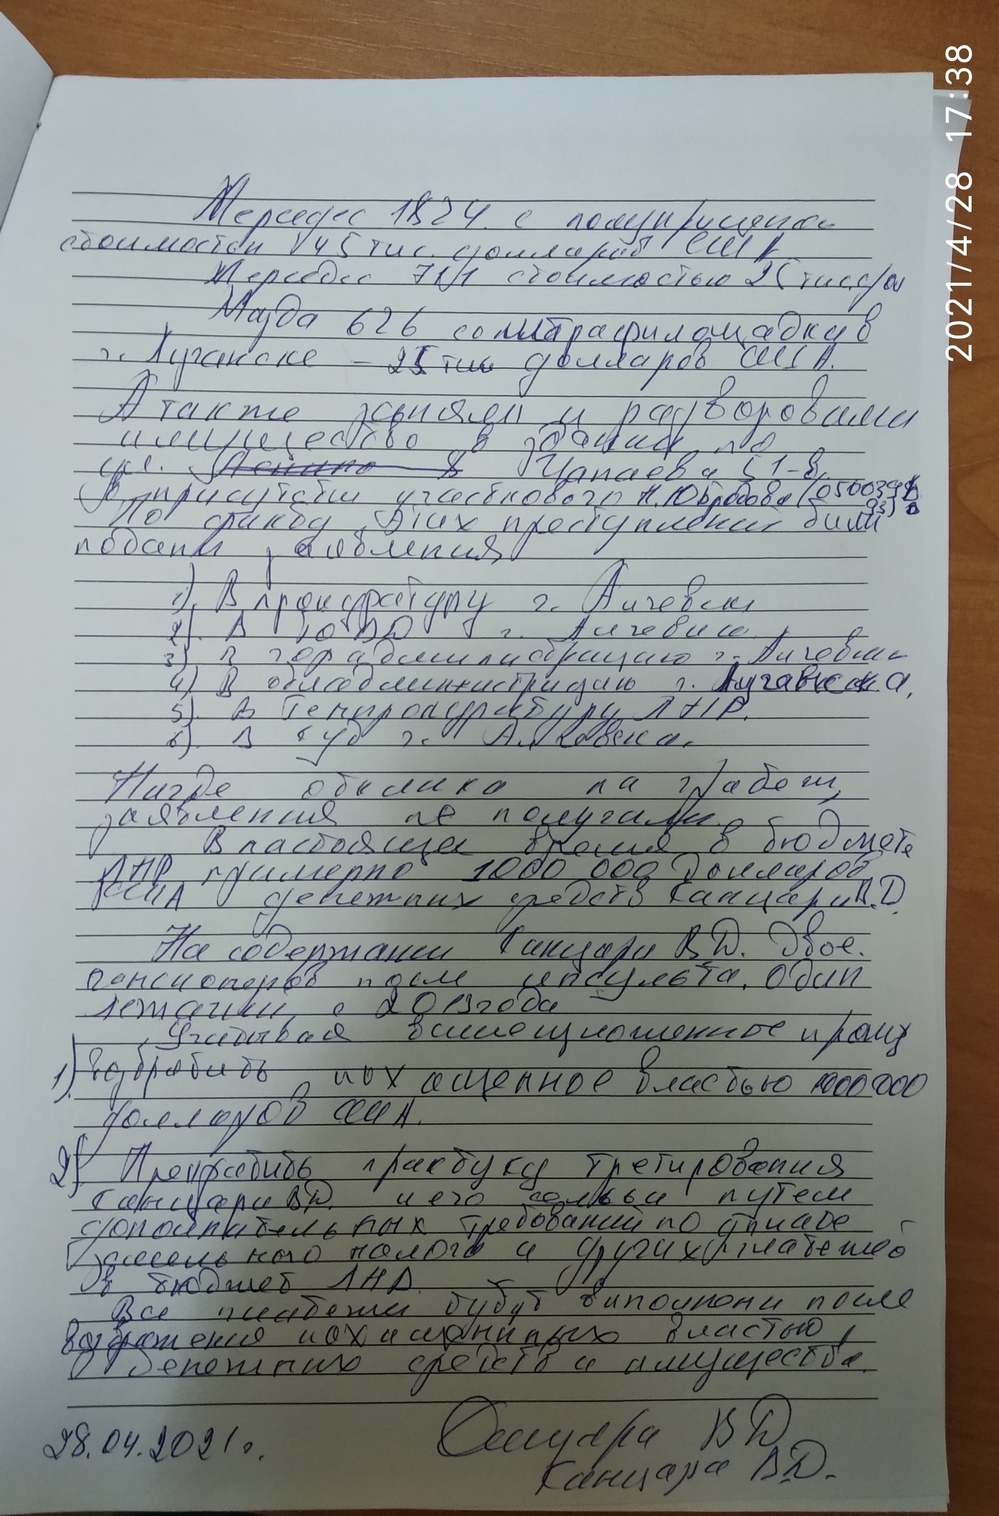 Мерседес 1824 с полуприцепом
стоимостью 45 тис. долларов США
Мерседес 711 стоимостью 25 тис.
Мазда 626
г. Луганске – 25 тис долларов США.
А также заняли и разворовали
имущество в здании по
ул. Ленина В Чапаева 51-в
В присутствии участкового
По факту этих преступлений были
поданы заявления
1). В прокуратуру г. Алчевска
2). В ЮВД г. Алчевска.
3). В горадминистрацию г. Алчевска
4). В обладминистрацию г. Луганска.
5). В Генпрокуратуру ЛНР.
6). В суд г. Алчевска.
Нигде отклика на
заявления не получали.
В настоящее время в бюджете
ЛНР примерно 1000 000 долларов
США денежних средств Канцари В.Д.
На содержании Канцари В.Д. двое
пенсионеров после инсульта. Один
лежачий с 2013года
Учитывая вишеизложенное прошу
1) Возвратить похищенное властью 1000000
долларов США.
2) Прекратить практику третирования
Канцари В.Д. и его семьи путем
дополнительных требований по оплате
земельного налога и других платежей
в бюджет ЛНР.
Все платежи будут виполнени после
возвражения похищенних властью
денежних средств и имущества.
28.04.2021г. Канцара В.Д.
Канцара В.Д.
2021/4/28 17:38